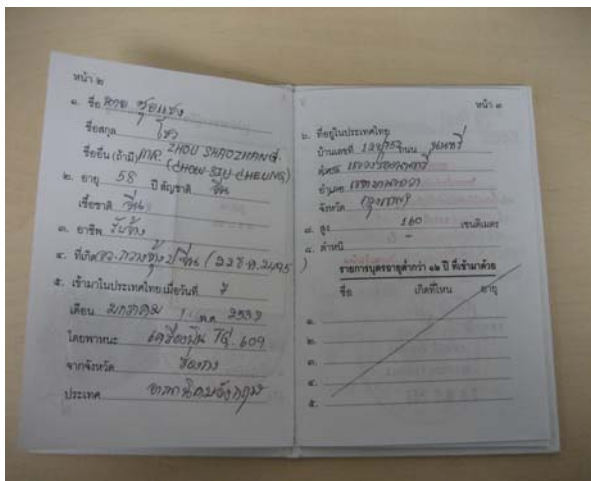 หน้า ๒
๑. ชื่อ นาย ซุยแซง
ชื่อสกุล โซว
ชื่ออื่น (ถ้ามี) MR. ZHOU SHAOZHANG.
(CHOW SIU CHEUNG)
๒. อายุ 58 ปี สัญชาติ จีน
เชื้อชาติ จีน
๓. อาชีพ รับจ้าง
๔. ที่เกิด กวางตุ้ง ปจีน
๕. เข้ามาในประเทศไทยเมื่อวันที่
เดือน มกราคม พ.ศ. 2537
โดยพาหนะ เครื่องบิน TG. 609
จากจังหวัด ฮ่องกง
ประเทศ อาณานิคมอังกฤษ
หน้า ๓
๖. ที่อยู่ในประเทศไทย
บ้านเลขที่ ถนน นนทรี
ตำบล แขวงช่องนนทรี
อำเภอ เขตยานนาวา
จังหวัด กรุงเทพฯ
๗. สูง 160 เซนติเมตร
๘. ตำหนิ -
รายการบุตรอายุต่ำกว่า ๑๒ ปี ที่เข้ามาด้วย
ชื่อ เกิดที่ไหน อายุ
๑.
๒.
๓.
๔.
๕.